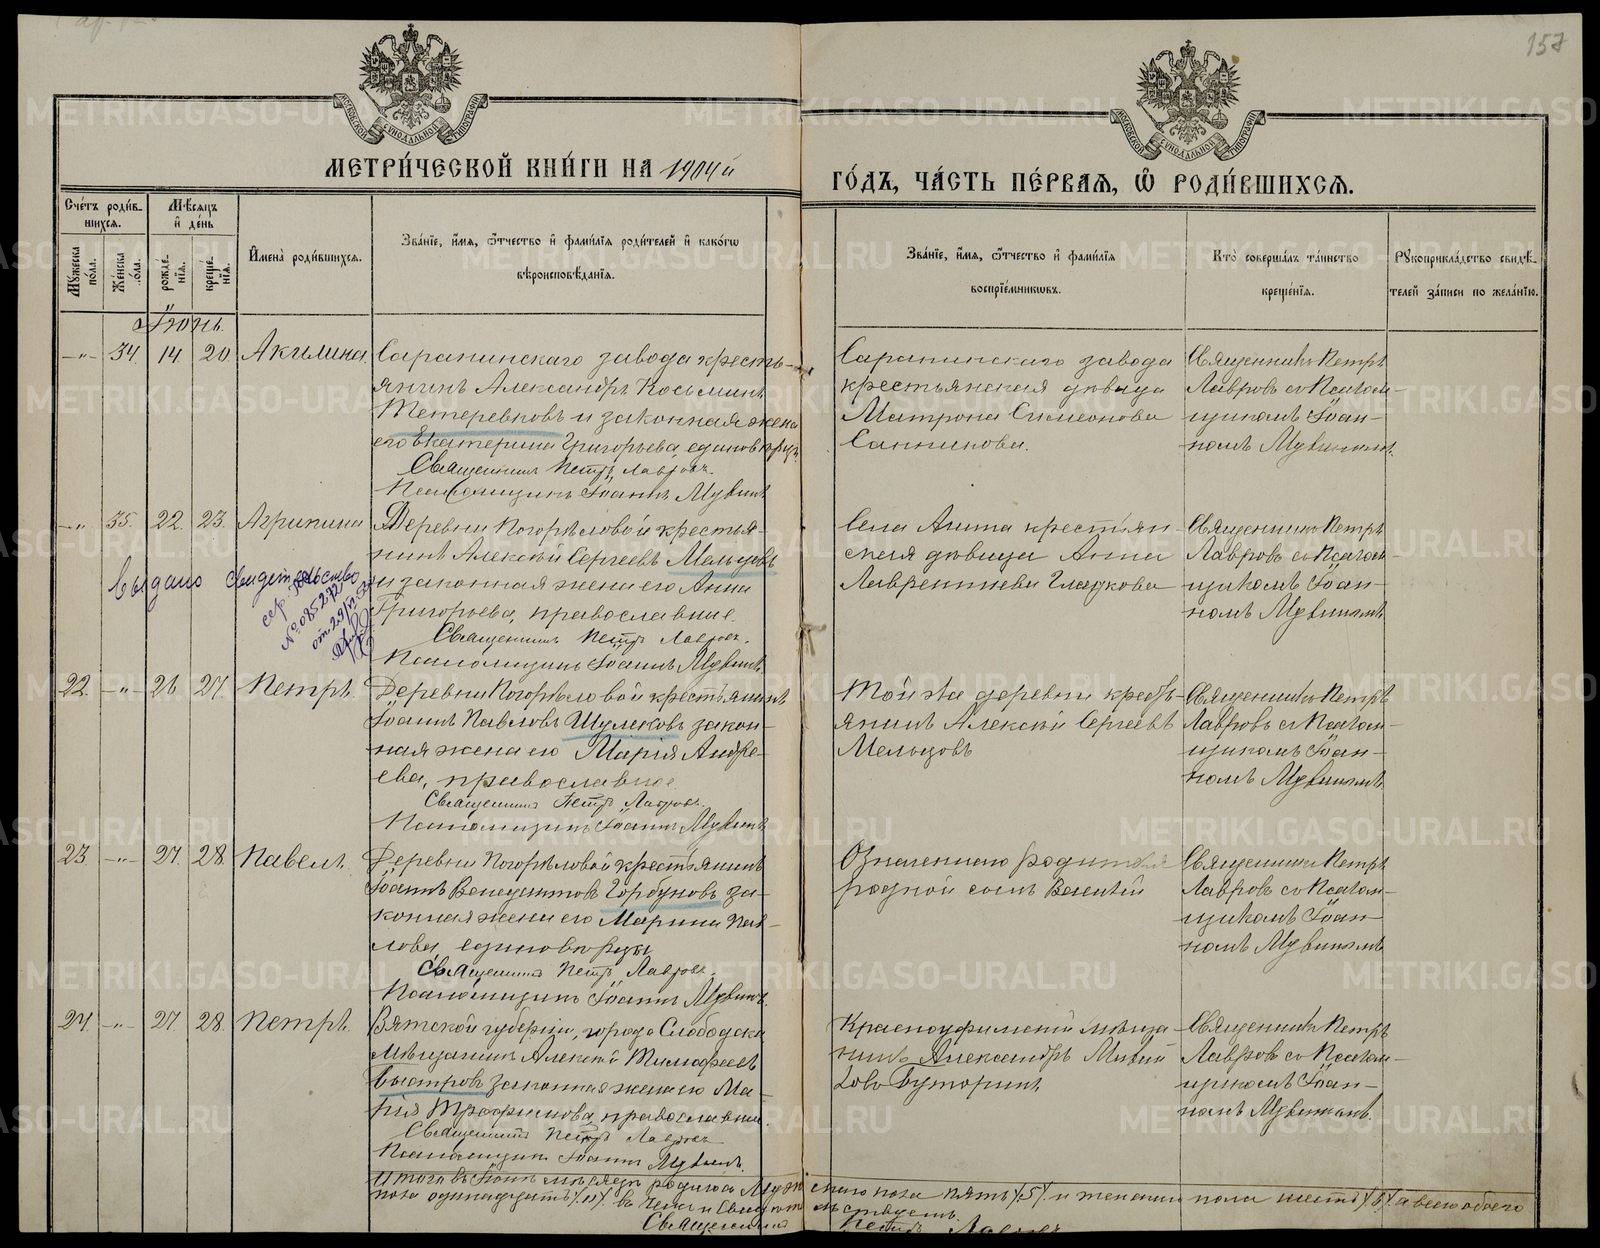 157
МОСКОВСКОЙ СѴНОДАЛЬНОЙ ТИПОГРАФІИ
МОСКОВСКОЙ СѴНОДАЛЬНОЙ ТИПОГРАФІИ
МЕТРИ́ЧЕСКОЙ КНИ́ГИ НА 1904й
ГО́ДЪ, ЧА́СТЬ ПЕ́РВАЯ, Ѡ РОДИ́ВШИХСЯ.
Сче́тъ роди́вшихся.
Му́жеска по́ла.
Же́нска по́ла.
Мѣ́сяцъ и де́нь
рожде́нія.
креще́нія.
Имена̀ роди́вшихся.
Зва́ніе, и́мя, о́тчество и фами́лія роди́телей и како́гѡ вѣроисповѣ́данія.
Зва́ніе, и́мя, о́тчество и фами́лія воспріе́мниковъ.
Кто̀ соверша́лъ та́инство креще́нія.
Рукоприкла́дство свидѣ́телей за́писи по жела́нію.
Іюнь.
-"- 34. 14 20 Акилина
Саранинскаго завода кресть-
янинъ Александръ Косьминъ
Тетеревковъ и законная жена
его Екатерина Григорьева, единовѣрцы.
Священникъ Петръ Лавровъ.
Псаломщикъ Іоаннъ Мувинъ.
Саранинскаго завода
крестьянская дѣвица
Матрона Симеонова
Санникова.
Священникъ Петръ
Лавровъ съ Псалом-
щикомъ Іоан-
номъ Мувинымъ.
-"- 35. 22. 23. Агрипина
Деревни Погорѣловой крестья-
нинъ Алексѣй Сергеевъ Мельцовъ
и законная жена его Анна
Григорьева, православные.
Священникъ Петръ Лавровъ.
Псаломщикъ Іоаннъ Мувинъ.
Села Ачита крестьян
ская дѣвица Анна
Лаврентиева Гладкова
Священникъ Петръ
Лавровъ съ Псалом-
щикомъ Іоан-
номъ Мувинымъ
Выдано свидетельство
№ 085292
22. -"- 26 27 Петръ.
Деревни Погорѣловой крестьянинъ
Іоаннъ Павловъ Шулековъ закон-
ная жена его Марія Андре-
ева, православные.
Священникъ Петръ Лавровъ.
Псаломщикъ Іоаннъ Мувинъ.
Той же деревни кресть-
янинъ Алексѣй Сергеевъ
Мельцовъ
Священникъ Петръ
Лавровъ съ Псалом-
щикомъ Іоан-
номъ Мувинымъ.
23. -"- 27. 28. Павелъ.
Деревни Погорѣловой крестьянинъ
Іоаннъ Венедиктовъ Горбуновъ за-
конная жена его Марина Пав-
лова единовѣрцы
Священникъ Петръ Лавровъ.
Псаломщикъ Іоаннъ Мувинъ.
Означенного родителя
родной сынъ
Священникъ Петръ
Лавровъ съ Псалом-
щикомъ Іоан-
номъ Мувинымъ
24. -"- 27. 28. Петръ.
Вятской губерніи, города Слободска
мѣщанинъ Алексѣй Тимофеевъ
Быстровъ законная жена его Ма-
рія Трофимова, православные.
Священникъ Петръ Лавровъ
Псаломщикъ Іоаннъ Мувинъ.
Красноуфимскій мѣща
нинъ Александръ
Бутаринъ
Священникъ Петръ
Лавровъ съ Псалом-
щикомъ Іоан-
номъ Мувинымъ.
Итого въ Іюнѣ мѣсяцѣ родилось мужескаго пола пять /5/. и женскаго пола шесть /6/ а всего обоего
пола одинадцать /11/.
Священникъ Петръ Лавровъ
METRIKI.GASO-URAL.RU